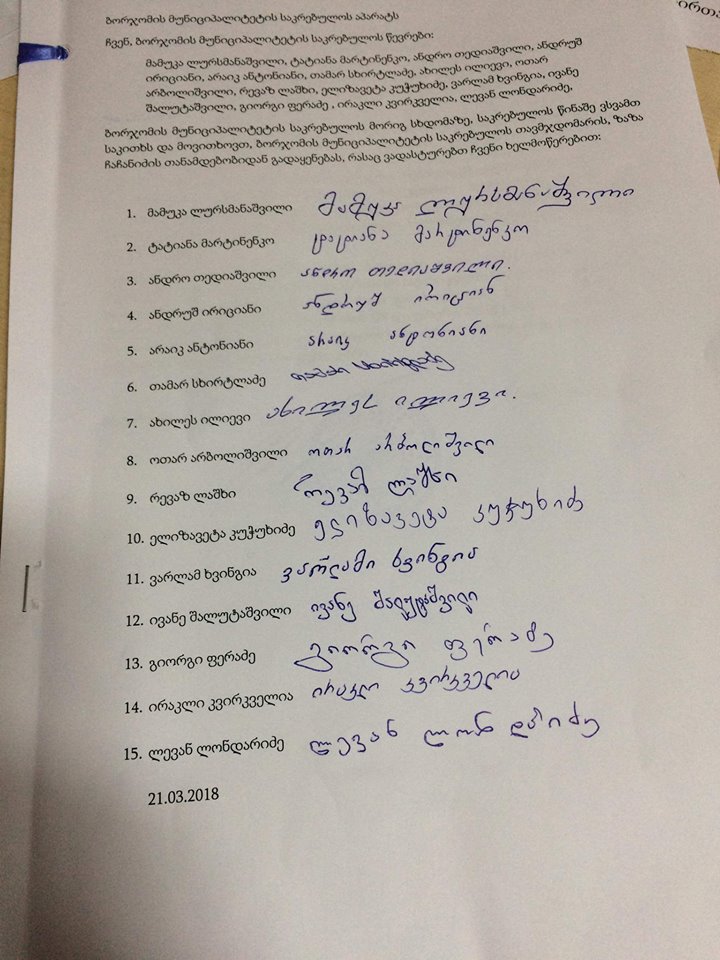 ბორჯომის მუნიციპალიტეტის საკრებულოს აპარატს
ჩვენ, ბორჯომის მუნიციპალიტეტის საკრებულოს წევრები:
მამუკა ლურსმანაშვილი, ტატიანა მარტინენკო, ანდრო თედიაშვილი, ანდრუშ
ირიციანი, არაიკ ანტონიანი, თამარ სხირტლაძე, ახილეს ილიევი, ოთარ
არბოლიშვილი, რევაზ ლაშხი, ელიზავეტა კუჭუხიძე, ვარლამ ხვინგია, ივანე
შალუტაშვილი, გიორგი ფერაძე , ირაკლი კვირკველია, ლევან ლონდარიძე,
ბორჯომის მუნიციპალიტეტის საკრებულოს მორიგ სხდომაზე, საკრებულოს წინაშე ვსვამთ
საკითხს და მოვითხოვთ, ბორჯომის მუნიციპალიტეტის საკრებულოს თავმჯდომარის, ზაზა
ჩაჩანიძის თანამდებობიდან გადაყენებას, რასაც ვადასტურებთ ჩვენი ხელმოწერებით:
1. მამუკა ლურსმანაშვილი მამუკა ლურსმანაშვილი
2. ტატიანა მარტინენკო ტატიანა მარტინენკო
3. ანდრო თედიაშვილი ანდრო თედიაშვილი.
4. ანდრუშ ირიციანი ანდრუშ ირიციან
5. არაიკ ანტონიანი არაიკ ანტონიანი
6. თამარ სხირტლაძე თამარ სხირტლაძე
7. ახილეს ილიევი ახილეს ილიევი.
8. ოთარ არბოლიშვილი ოთარ არბოლიშვილი
9. რევაზ ლაშხი რევაზ ლაშხი
10. ელიზავეტა კუჭუხიძე ელიზავეტა კუჭუხიძე
11. ვარლამ ხვინგია ვარლამი ხვინგია
12. ივანე შალუტაშვილი ივანე შალუტაშვილი
13. გიორგი ფერაძე გიორგი ფერაძე
14. ირაკლი კვირკველია ირაკლი კვირკველია
15. ლევან ლონდარიძე ლევან ლონდარიძე
21.03.2018